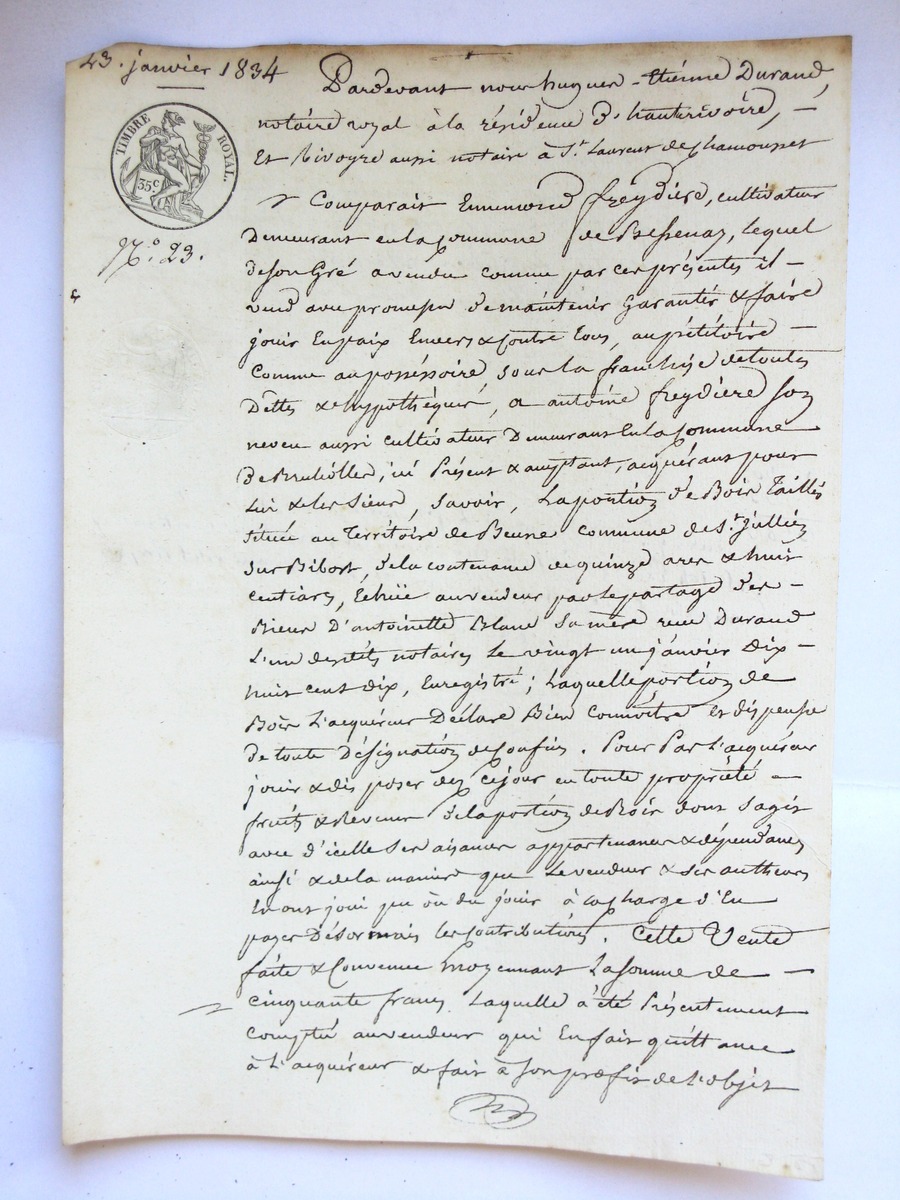 23. janvier 1834
TIMBRE ROYAL.
35c.
N.° 23.
Pardevant nous hugues - Etiénne Durand,
notaire royal à la résidence d'hauterivoire, —
Et Rivoyre aussi notaire à St. Laurent de Chamousset
Comparait Ennemond freydiere, cultivateur
Demeurant en la Commune de Bessenay, lequel
de son Gré a vendu comme par ces présentes il —
vend avec promesse de maintenir Garantir & faire
jouir En paix Envers & Contre tous, au pétitoire —
Comme au posséssoire sous la franchise de toutes
Dettes & hypothèques, a antoine freydiere son
neveu aussi cultivateur Demeurant En la Commune
de Brullioles, ici Présent & acceptant, acquérant pour
Lui & les Siens, Savoir, La portion de Bois Taillis
Située au Territoire de Beune Commune de St. Jullien
sur Bibost, de la contenance de quinze ares & huit
centiares, Echüe au vendeur par le partage des —
Biens D'antoinette Blanc Sa mère reçu Durand
L'un desdits notaires Le vingt un janvier Dix —
huit cent dix, Enregistré; Laquelle portion de
Bois L'acquéreur Déclare Bien Connoitre et dispense
de toute Désignation de Confins. Pour Par L'acquéreur
jouir & dis poser dez ce jour en toute propriété —
fruits & Revenus de la portion de Bois dont S'agit
avec d'icelle Ses aisances appartenances & dépendances
ainsi & de la maniere que Le vendeur & Ses autheurs
En ont joui pu ou dû jouir à la charge d'En
payer Désormais Les Contributions. Cette Vente
faite & Convenue moyennant La Somme de —
cinquante francs Laquelle à été Présentement
Comptée au vendeur qui En fait quittance
à L'acquéreur & fait à Son profit de L'objet